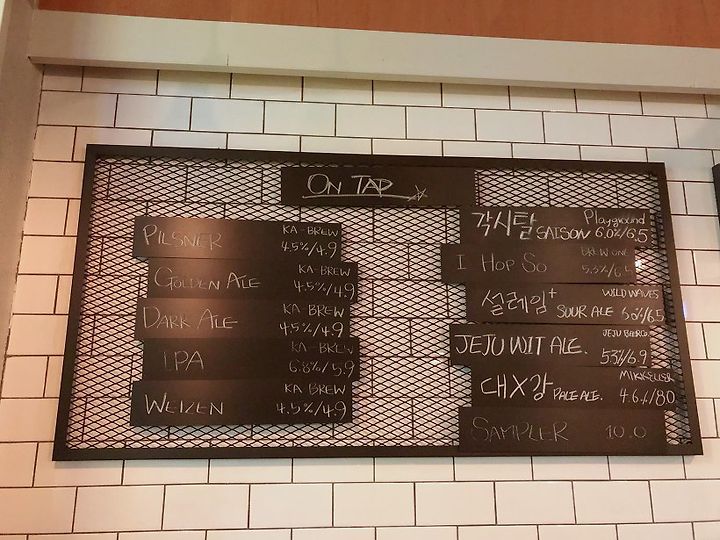 ON TAP
PILSNER KA-BREW
4.5%/4.9
GOLDEN ALE KA-BREW
4.5%/4.9
DARK ALE KA-BREW
4.5%/4.9
IPA KA-BREW
6.8%/5.9
WEIZEN KA BREW
4.5%/4.9
각시탈 SAISON Playground
6.0%/6.5
I HOP SO BREW ONE
5.3%/6.5
설레임+ SOUR ALE WILD WAVES
6.5
JEJU WIT ALE. JEJU BEER CO.
5.3%/6.9
대X강 PALE ALE. MIKKELLER
4.6%/8.0
SAMPLER 10.0